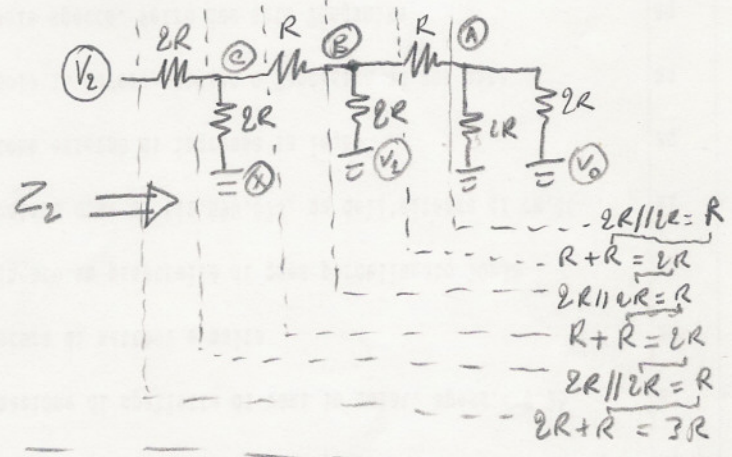 2R C R B R A
V2
2R 2R 2R 2R
X V1 V0
Z2
2R//2R = R
R+R = 2R
2R//2R = R
R+R = 2R
2R//2R = R
2R+R = 3R